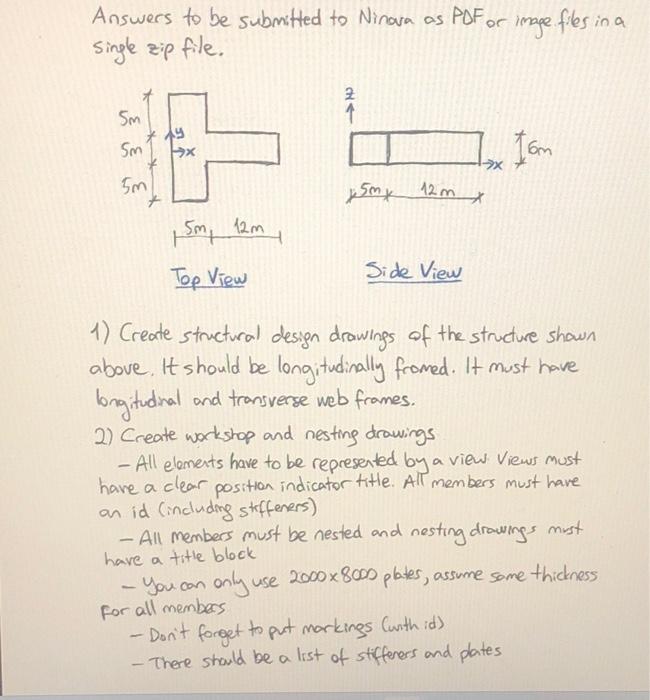 Answers to be submitted to Ninova as PDF or image files in a
single zip file.
5m
5m
5m
y
x
5m
12m
Top View
z
x
6m
5m
12m
Side View
1) Create structural design drawings of the structure shown
above. It should be longitudinally framed. It must have
longitudinal and transverse web frames.
2) Create workshop and nesting drawings
- All elements have to be represented by a view. Views must
have a clear position indicator title. All members must have
an id (including stiffeners)
- All members must be nested and nesting drawings must
have a title block
- You can only use 2000x8000 plates, assume same thickness
for all members
- Don't forget to put markings (with id)
- There should be a list of stiffeners and plates